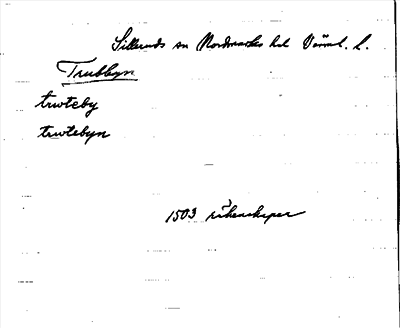 Silleruds sn Nordmarks hd Värml. l.
Trubbyn
trwteby
trwtebyn
1503 räkenskaper